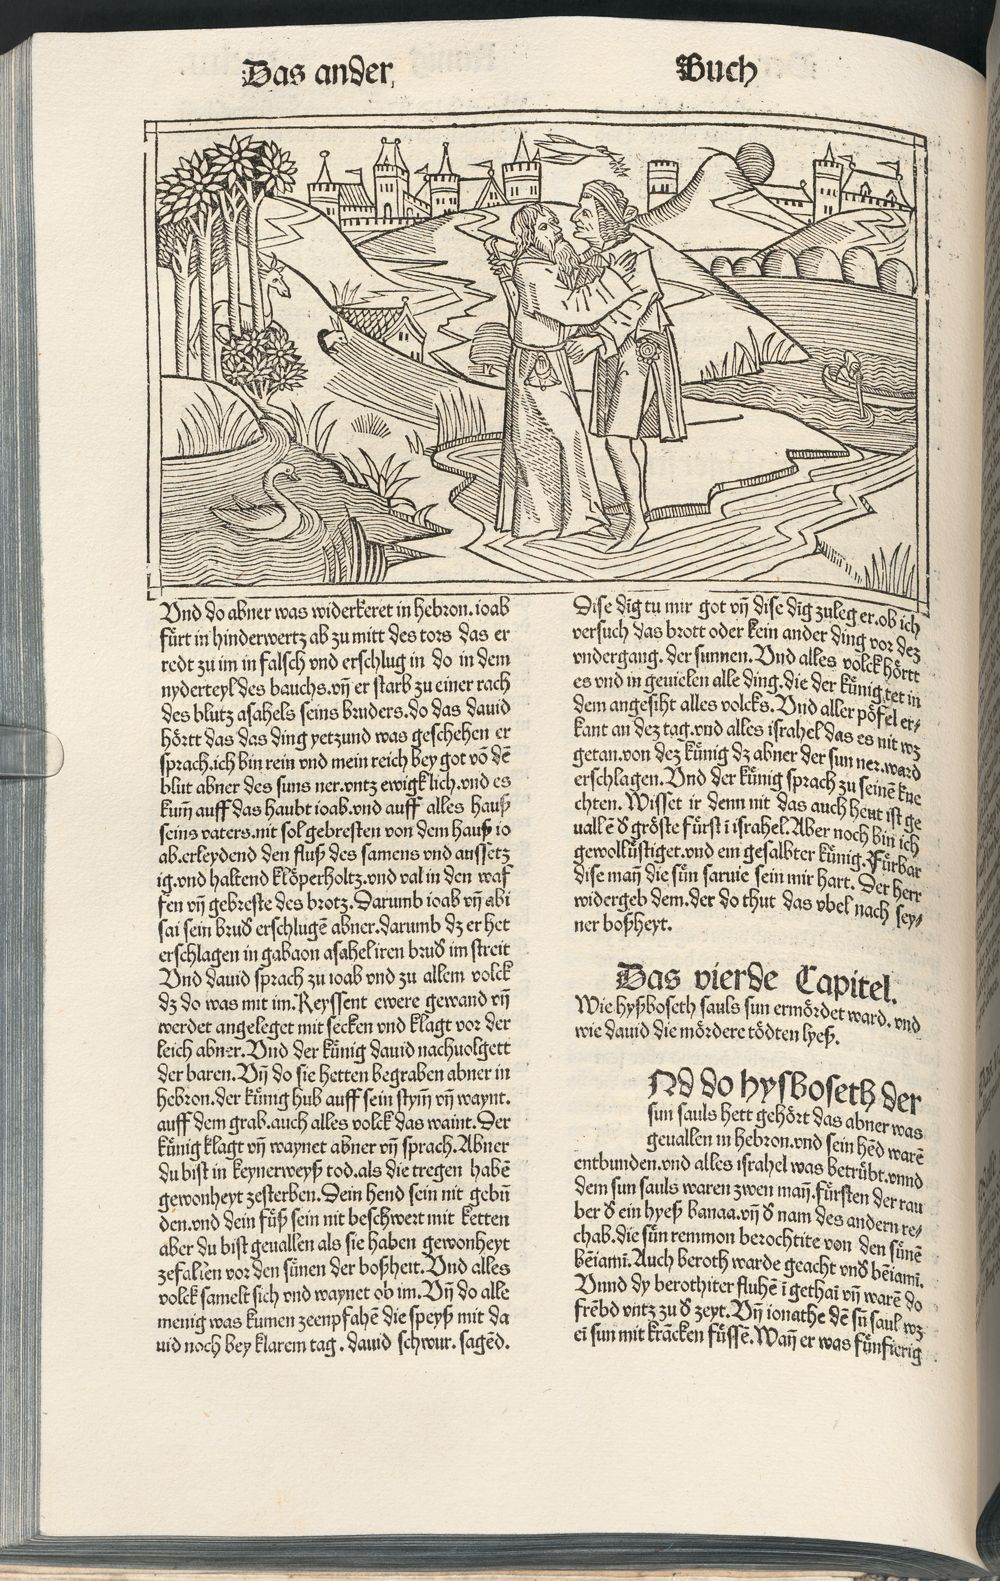 Das ander Buch
Vnd do abner was widerkeret in hebron. ioab
fuͤrt in hinderwertz ab zu mitt des tors das er
redt zu im in falsch vnd erschlug in do in dem
nyderteyl des bauchs. vn̄ er starb zu einer rach
des blutz asahels seins bruders. do das dauid
hoͤrtt das das ding yetzund was geschehen er
sprach. ich bin rein vnd mein reich bey got vō dē
blut abner des suns ner. vntz ewigklich. vnd es
kum̄ auff das haubt ioab. vnd auff alles hauß
seins vaters. nit sol gebresten von dem hauß io
ab. erleydend den fluß des samens vnd aussetz
ig. vnd haltend kloͤperholtz. vnd val in den waf
fen vn̄ gebreste des brotz. Darumb ioab vn̄ abi
sai sein brud̄ erschlugē abner. darumb dz er het
erschlagen in gabaon asahel iren brud̄ im streit
Vnd dauid sprach zu ioab vnd zu allem volck
dz do was mit im. Reyssent ewere gewand vn̄
werdet angeleget mit secken vnd klagt vor der
leich abner. Vnd der kuͤnig dauid nachuolgett
der baren. Vn̄ do sie hetten begraben abner in
hebron. der kuͤnig hub auff sein stym̄ vn̄ waynt.
auff dem grab. auch alles volck das waint. Der
kuͤnig klagt vn̄ waynet abner vn̄ sprach. Abner
du bist in keynerweyß tod. als die tregen habē
gewonheyt zesterben. Dein hend sein nit gebū
den. vnd dein fuͤß sein nit beschwert mit ketten
aber du bist geuallen als sie haben gewonheyt
zefallen vor den suͤnen der boßheit. Vnd alles
volck samelt sich vnd waynet ob im. Vn̄ do alle
menig was kumen zeenpfahē die speyß mit da
uid noch bey klarem tag. dauid schwur. sagēd.
Dise dīg tu mir got vn̄ dise dīg zuleg er. ob ich
versuch das brott oder kein ander ding vor dez
vndergang. der sunnen. Vnd alles volck hoͤrtt
es vnd in geuielen alle ding. die der kuͤnig tet in
dem angesiht alles volcks. Vnd aller poͤfel er⸗
kant an dez tag. vnd alles israhel das es nit wz
getan. von dez kuͤnig dz abner der sun ner. ward
erschlagen. Vnd der kuͤnig sprach zu seinē kne
chten. Wisset ir denn nit das auch heut ist ge
uallē d̄ groͤste fuͤrst ī israhel. Aber noch bin ich
gewolluͤstiget. vnd ein gesalbter kuͤnig. Fuͤrbar
dise man̄ die suͤn saruie sein mir hart. Der herr
widergeb dem. der do thut das vbel nach sey⸗
ner boßheyt.
Das vierde Capitel.
Wie hyßboseth sauls sun ermoͤrdet ward. vnd
wie dauid die moͤrdere toͤdten lyeß.
Nd do hysboseth der
sun sauls hett gehoͤrt das abner was
geuallen in hebron. vnd sein hēd warē
entbunden. vnd alles israhel was betruͤbt. vnnd
dem sun sauls waren zwen man̄. fuͤrsten der rau
ber d̄ ein hyeß banaa. vn̄ d̄ nam des andern re⸗
chab. die suͤn remmon berochtite von den suͤnē
bēiamī. Auch beroth warde geacht vnd bēiamī.
Vnnd dy berothiter fluhē ī gethaī vn̄ warē do
frēbd vntz zu d̄ zeyt. Vn̄ ionathe dē sū saul wz
eī sun mit krācken fuͤssē. Wan̄ er was fuͤnfierig